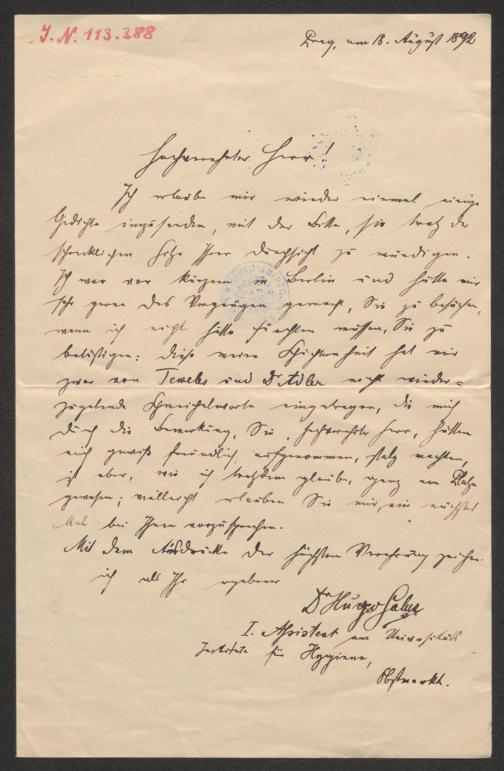 I.N. 113.388
Prag, am 18. August 1892
Hochverehrter Herr!
Ich erlaube mir wieder einmal einige
Gedichte einzusenden, mit der Bitte, sie trotz der
schrecklichen Hitze Ihrer Durchsicht zu würdigen.
Ich war vor kurzem in Berlin und hätte mir
sehr gerne das Vergnügen gemacht, Sie zu besuchen,
wenn ich nicht hätte fürchten müssen, Sie zu
belästigen; diese meine Schüchternheit hat mir
zwar von Teweles und Dr Adler nicht wieder=
zugebende Schmeichelworte eingetragen, die mich
durch die Bemerkung, Sie, hochverehrter Herr, hätten
mich gewiß freundlich aufgenommen, stolz machten,
ist aber, wie ich trotzdem glaube, ganz am Platze
gewesen; vielleicht erlauben Sie mir, ein nächstes
Mal bei Ihnen vorzusprechen.
Mit dem Ausdrucke der höchsten Verehrung zeichne
ich als Ihr ergebener
Dr Hugo Salus
I. Assistent am Universitäts
Institute für Hygiene,
Obstmarkt.